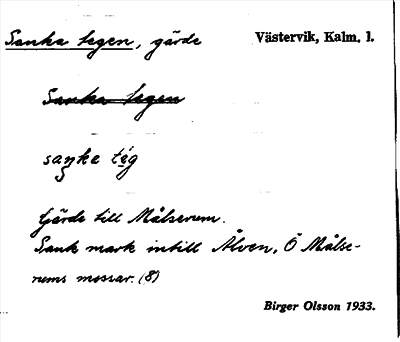 Sanka tegen, gärde Västervik, Kalm. l.
Sanka tegen
saŋke tég
Gärde till Målserum.
Sank mark intill Älven, Ö Målse-
rums mossar. (8)
Birger Olsson 1933.